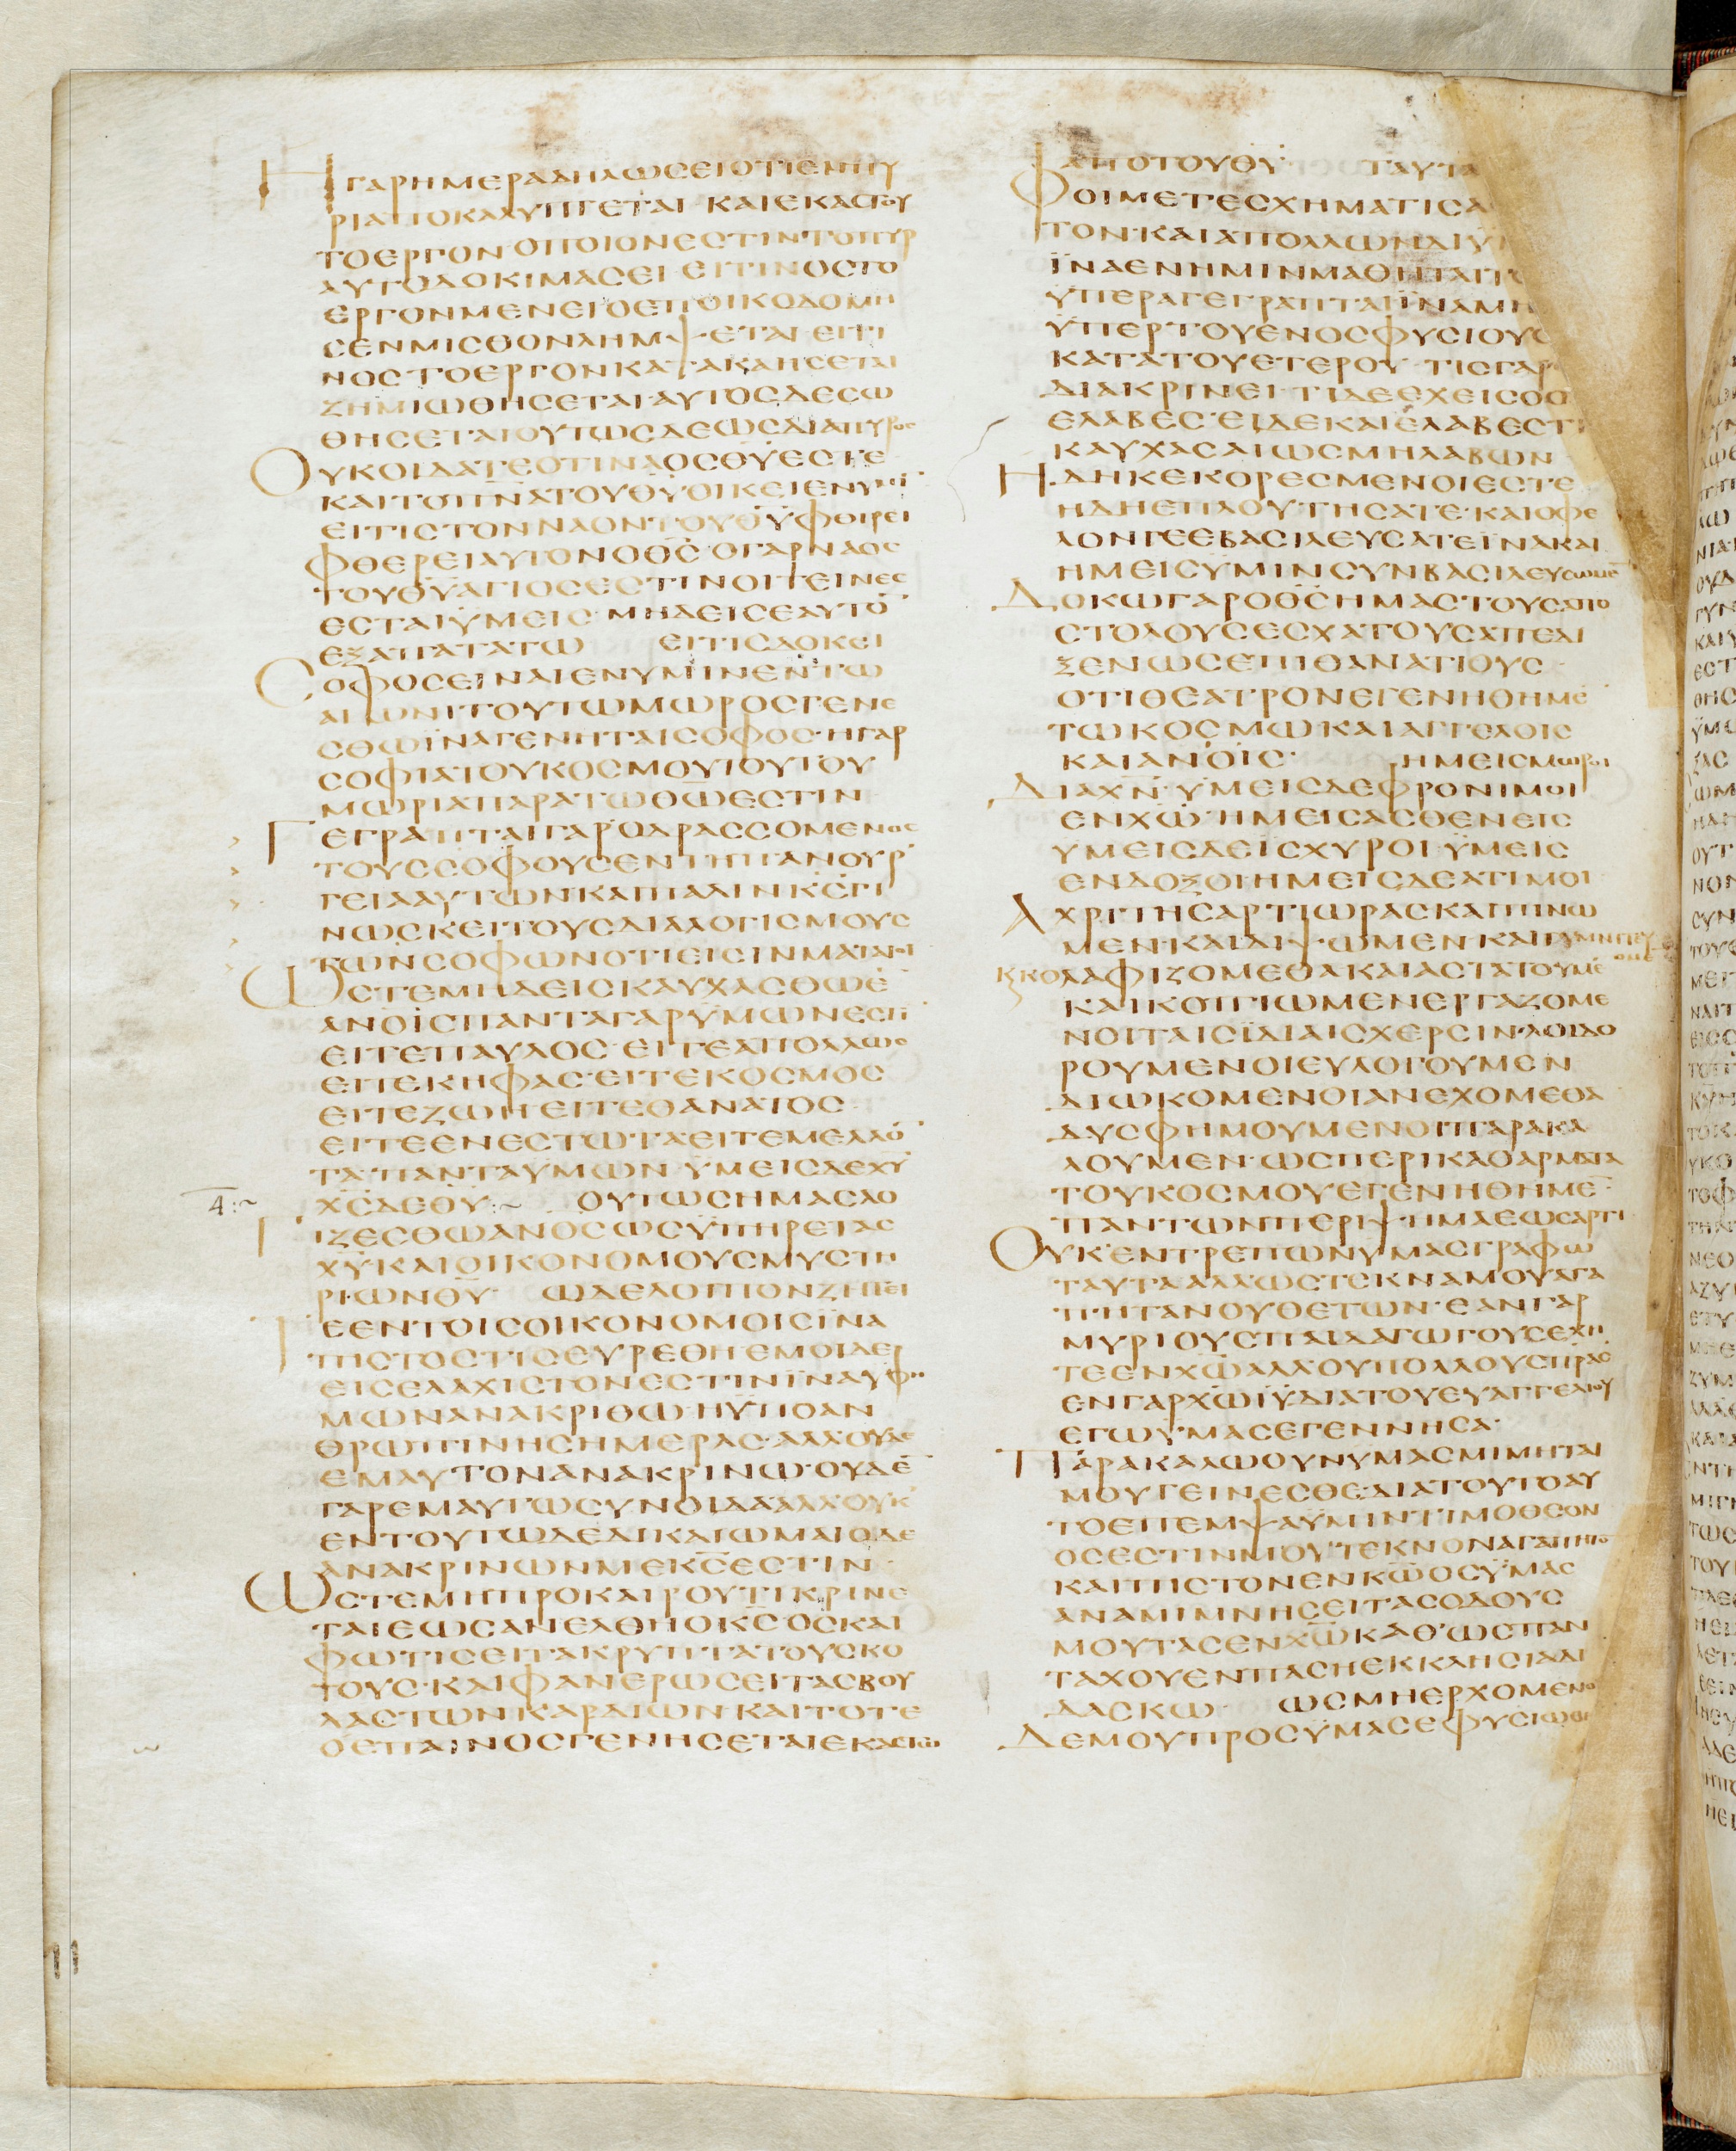 Η ΓΑΡ ΗΜΕΡΑ ΔΗΛΩΣΕΙ ΟΤΙ ΕΝ ΠΥ
ΡΙ ΑΠΟΚΑΛΥΠΤΕΤΑΙ ΚΑΙ ΕΚΑΣΤΟΥ
ΤΟ ΕΡΓΟΝ ΟΠΟΙΟΝ ΕΣΤΙΝ ΤΟ ΠΥΡ
ΑΥΤΟ ΔΟΚΙΜΑΣΕΙ ΕΙ ΤΙΝΟΣ ΤΟ
ΕΡΓΟΝ ΜΕΝΕΙ Ο ΕΠΟΙΚΟΔΟΜΗ
ΣΕΝ ΜΙΣΘΟΝ ΛΗΜΨΕΤΑΙ ΕΙ ΤΙ
ΝΟΣ ΤΟ ΕΡΓΟΝ ΚΑΤΑΚΑΗΣΕΤΑΙ
ΖΗΜΙΩΘΗΣΕΤΑΙ ΑΥΤΟΣ ΔΕ ΣΩ
ΘΗΣΕΤΑΙ ΟΥΤΩΣ ΔΕ ΩΣ ΔΙΑ ΠΥΡΟΣ
ΟΥΚ ΟΙΔΑΤΕ ΟΤΙ ΝΑΟΣ ΘΥ ΕΣΤΕ
ΚΑΙ ΤΟ ΠΝΑ ΤΟΥ ΘΥ ΟΙΚΕΙ ΕΝ ΥΜΙ
ΕΙ ΤΙΣ ΤΟΝ ΝΑΟΝ ΤΟΥ ΘΥ ΦΘΙΡΕΙ
ΦΘΕΡΕΙ ΑΥΤΟΝ Ο ΘΣ Ο ΓΑΡ ΝΑΟΣ
ΤΟΥ ΘΥ ΑΓΙΟΣ ΕΣΤΙΝ ΟΙΤΕΙΝΕΣ
ΕΣΤΑΙ ΥΜΕΙΣ ΜΗΔΕΙΣ ΕΑΥΤΟ
ΕΞΑΠΑΤΑΤΩ ΕΙ ΤΙΣ ΔΟΚΕΙ
ΣΟΦΟΣ ΕΙΝΑΙ ΕΝ ΥΜΙΝ ΕΝ ΤΩ
ΑΙΩΝΙ ΤΟΥΤΩ ΜΩΡΟΣ ΓΕΝΕ
ΣΘΩ ΙΝΑ ΓΕΝΗΤΑΙ ΣΟΦΟΣ Η ΓΑΡ
ΣΟΦΙΑ ΤΟΥ ΚΟΣΜΟΥ ΤΟΥΤΟΥ
ΜΩΡΙΑ ΠΑΡΑ ΤΩ ΘΩ ΕΣΤΙΝ
ΓΕΓΡΑΠΤΑΙ ΓΑΡ Ο ΔΡΑΣΣΟΜΕΝΟΣ
ΤΟΥΣ ΣΟΦΟΥΣ ΕΝ ΤΗ ΠΑΝΟΥΡ
ΓΕΙΑ ΑΥΤΩΝ ΚΑΙ ΠΑΛΙΝ ΚΣ ΓΙ
ΝΩΣΚΕΙ ΤΟΥΣ ΔΙΑΛΟΓΙΣΜΟΥΣ
ΤΩΝ ΣΟΦΩΝ ΟΤΙ ΕΙΣΙΝ ΜΑΤΑΙΟΙ
ΩΣΤΕ ΜΗΔΕΙΣ ΚΑΥΧΑΣΘΩ Ε
ΑΝΟΙΣ ΠΑΝΤΑ ΓΑΡ ΥΜΩΝ ΕΣΤΙ
ΕΙΤΕ ΠΑΥΛΟΣ ΕΙΤΕ ΑΠΟΛΛΩΣ
ΕΙΤΕ ΚΗΦΑΣ ΕΙΤΕ ΚΟΣΜΟΣ
ΕΙΤΕ ΖΩΗ ΕΙΤΕ ΘΑΝΑΤΟΣ
ΕΙΤΕ ΕΝΕΣΤΩΤΑ ΕΙΤΕ ΜΕΛΛΟ
ΤΑ ΠΑΝΤΑ ΥΜΩΝ ΥΜΕΙΣ ΔΕ ΧΥ
ΧΣ ΔΕ ΘΥ ΟΥΤΩΣ ΗΜΑΣ ΛΟ
ΓΙΖΕΣΘΩ ΑΝΟΣ ΩΣ ΥΠΗΡΕΤΑΣ
ΧΥ ΚΑΙ ΟΙΚΟΝΟΜΟΥΣ ΜΥΣΤΗ
ΡΙΩΝ ΘΥ ΩΔΕ ΛΟΙΠΟΝ ΖΗΤΕΙ
ΤΕ ΕΝ ΤΟΙΣ ΟΙΚΟΝΟΜΟΙΣ ΙΝΑ
ΠΙΣΤΟΣ ΤΙΣ ΕΥΡΕΘΗ ΕΜΟΙ ΔΕ
ΕΙΣ ΕΛΑΧΙΣΤΟΝ ΕΣΤΙΝ ΙΝΑ ΥΦ Υ
ΜΩΝ ΑΝΑΚΡΙΘΩ Η ΥΠΟ ΑΝ
ΘΡΩΠΙΝΗΣ ΗΜΕΡΑΣ ΑΛΛ ΟΥΔΕ
ΕΜΑΥΤΟΝ ΑΝΑΚΡΙΝΩ ΟΥΔΕ
ΓΑΡ ΕΜΑΥΤΩ ΣΥΝΟΙΔΑ ΑΛΛ ΟΥΚ
ΕΝ ΤΟΥΤΩ ΔΕΔΙΚΑΙΩΜΑΙ Ο ΔΕ
ΑΝΑΚΡΙΝΩΝ ΜΕ ΚΣ ΕΣΤΙΝ
ΩΣΤΕ ΜΗ ΠΡΟ ΚΑΙΡΟΥ ΤΙ ΚΡΙΝΕ
ΤΑΙ ΕΩΣ ΑΝ ΕΛΘΗ Ο ΚΣ ΟΣ ΚΑΙ
ΦΩΤΙΣΕΙ ΤΑ ΚΡΥΠΤΑ ΤΟΥ ΣΚΟ
ΤΟΥΣ ΚΑΙ ΦΑΝΕΡΩΣΕΙ ΤΑΣ ΒΟΥ
ΛΑΣ ΤΩΝ ΚΑΡΔΙΩΝ ΚΑΙ ΤΟΤΕ
Ο ΕΠΑΙΝΟΣ ΓΕΝΗΣΕΤΑΙ ΕΚΑΣΤΩ
ΑΠΟ ΤΟΥ ΘΥ ΤΑΥΤΑ
ΦΟΙ ΜΕΤΕΣΧΗΜΑΤΙΣΑ
ΤΟΝ ΚΑΙ ΑΠΟΛΛΩΝ ΔΙ Υ
ΙΝΑ ΕΝ ΗΜΙΝ ΜΑΘΗΤΑΙ ΤΟ
ΥΠΕΡ Α ΓΕΓΡΑΠΤΑΙ ΙΝΑ ΜΗ
ΥΠΕΡ ΤΟΥ ΕΝΟΣ ΦΥΣΙΟΥΣ
ΚΑΤΑ ΤΟΥ ΕΤΕΡΟΥ ΤΙΣ ΓΑΡ
ΔΙΑΚΡΙΝΕΙ ΤΙ ΔΕ ΕΧΕΙΣ Ο Ο
ΕΛΑΒΕΣ ΕΙ ΔΕ ΚΑΙ ΕΛΑΒΕΣ ΤΙ
ΚΑΥΧΑΣΑΙ ΩΣ ΜΗ ΛΑΒΩΝ
ΗΔΗ ΚΕΚΟΡΕΣΜΕΝΟΙ ΕΣΤΕ
ΗΔΗ ΕΠΛΟΥΤΗΣΑΤΕ ΚΑΙ ΟΦΕ
ΛΟΝ ΓΕ ΕΒΑΣΙΛΕΥΣΑΤΕ ΙΝΑ ΚΑΙ
ΗΜΕΙΣ ΥΜΙΝ ΣΥΝΒΑΣΙΛΕΥΣΩΜΕ
ΔΟΚΩ ΓΑΡ Ο ΘΣ ΗΜΑΣ ΤΟΥΣ ΑΠΟ
ΣΤΟΛΟΥΣ ΕΣΧΑΤΟΥΣ ΑΠΕΔΙ
ΞΕΝ ΩΣ ΕΠΙΘΑΝΑΤΙΟΥΣ
ΟΤΙ ΘΕΑΤΡΟΝ ΕΓΕΝΗΘΗΜΕ
ΤΩ ΚΟΣΜΩ ΚΑΙ ΑΓΓΕΛΟΙΣ
ΚΑΙ ΑΝΟΙΣ ΗΜΕΙΣ ΜΩΡΟΙ
ΔΙΑ ΧΝ ΥΜΕΙΣ ΔΕ ΦΡΟΝΙΜΟΙ
ΕΝ ΧΩ ΗΜΕΙΣ ΑΣΘΕΝΕΙΣ
ΥΜΕΙΣ ΔΕ ΙΣΧΥΡΟΙ ΥΜΕΙΣ
ΕΝΔΟΞΟΙ ΗΜΕΙΣ ΔΕ ΑΤΙΜΟΙ
ΑΧΡΙ ΤΗΣ ΑΡΤΙ ΩΡΑΣ ΚΑΙ ΠΙΝΩ
ΜΕΝ ΚΑΙ ΔΙΨΩΜΕΝ ΚΑΙ ΓΥΜΝΙΤΕΥ
ΟΜΕ
Κ ΚΟΛΑΦΙΖΟΜΕΘΑ ΚΑΙ ΑΣΤΑΤΟΥΜΕ
ΚΑΙ ΚΟΠΙΩΜΕΝ ΕΡΓΑΖΟΜΕ
ΝΟΙ ΤΑΙΣ ΙΔΙΑΙΣ ΧΕΡΣΙΝ ΛΟΙΔΟ
ΡΟΥΜΕΝΟΙ ΕΥΛΟΓΟΥΜΕΝ
ΔΙΩΚΟΜΕΝΟΙ ΑΝΕΧΟΜΕΘΑ
ΔΥΣΦΗΜΟΥΜΕΝΟΙ ΠΑΡΑΚΑ
ΛΟΥΜΕΝ ΩΣΠΕΡΙΚΑΘΑΡΜΑΤΑ
ΤΟΥ ΚΟΣΜΟΥ ΕΓΕΝΗΘΗΜΕ
ΠΑΝΤΩΝ ΠΕΡΙΨΗΜΑ ΕΩΣ ΑΡΤΙ
ΟΥΚ ΕΝΤΡΕΠΩΝ ΥΜΑΣ ΓΡΑΦΩ
ΤΑΥΤΑ ΑΛΛ ΩΣ ΤΕΚΝΑ ΜΟΥ ΑΓΑ
ΠΗΤΑ ΝΟΥΘΕΤΩΝ ΕΑΝ ΓΑΡ
ΜΥΡΙΟΥΣ ΠΑΙΔΑΓΩΓΟΥΣ ΕΧΗ
ΤΕ ΕΝ ΧΩ ΑΛΛ ΟΥ ΠΟΛΛΟΥΣ ΠΡΑΣ
ΕΝ ΓΑΡ ΧΩ ΙΥ ΔΙΑ ΤΟΥ ΕΥΑΓΓΕΛΙΟΥ
ΕΓΩ ΥΜΑΣ ΕΓΕΝΝΗΣΑ
ΠΑΡΑΚΑΛΩ ΟΥΝ ΥΜΑΣ ΜΙΜΗΤΑΙ
ΜΟΥ ΓΕΙΝΕΣΘΕ ΔΙΑ ΤΟΥΤΟ ΑΥ
ΤΟ ΕΠΕΜΨΑ ΥΜΙΝ ΤΙΜΟΘΕΟΝ
ΟΣ ΕΣΤΙΝ ΜΟΥ ΤΕΚΝΟΝ ΑΓΑΠΗΤΟ
ΚΑΙ ΠΙΣΤΟΝ ΕΝ ΚΩ ΟΣ ΥΜΑΣ
ΑΝΑΜΙΜΝΗΣΕΙ ΤΑΣ ΟΔΟΥΣ
ΜΟΥ ΤΑΣ ΕΝ ΧΩ ΚΑΘΩΣ ΠΑΝ
ΤΑΧΟΥ ΕΝ ΠΑΣΗ ΕΚΚΛΗΣΙΑ ΔΙ
ΔΑΣΚΩ ΩΣ ΜΗ ΕΡΧΟΜΕΝΟ
ΔΕ ΜΟΥ ΠΡΟΣ ΥΜΑΣ ΕΦΥΣΙΩΘΗ